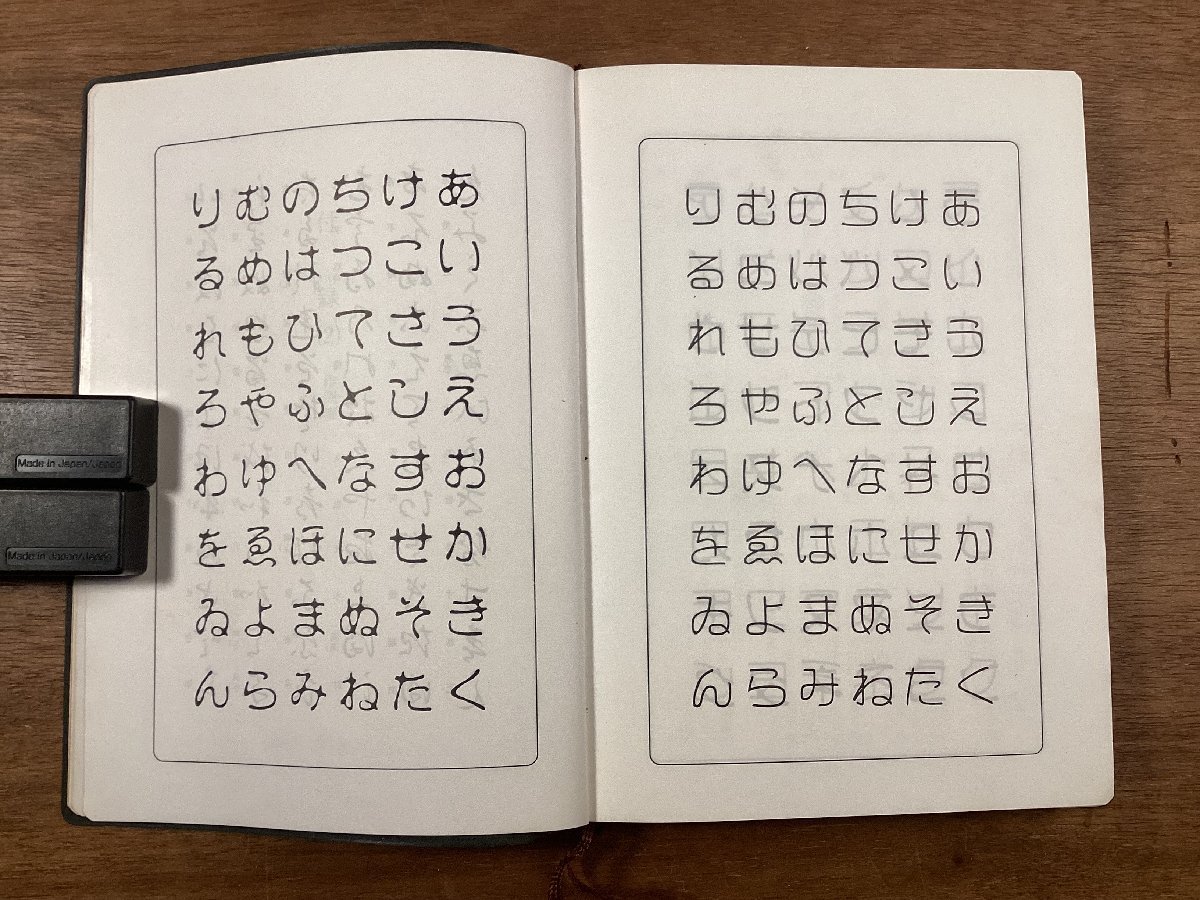 あいうえおかきく
けこさしすせそた
ちつてとなにぬね
のはひふへほまみ
むめもやゆゑよら
りるれろわをゐん
あいうえおかきく
けこさしすせそた
ちつてとなにぬね
のはひふへほまみ
むめもやゆゑよら
りるれろわをゐん
Made in Japan/Japon
Made in Japan/Japon